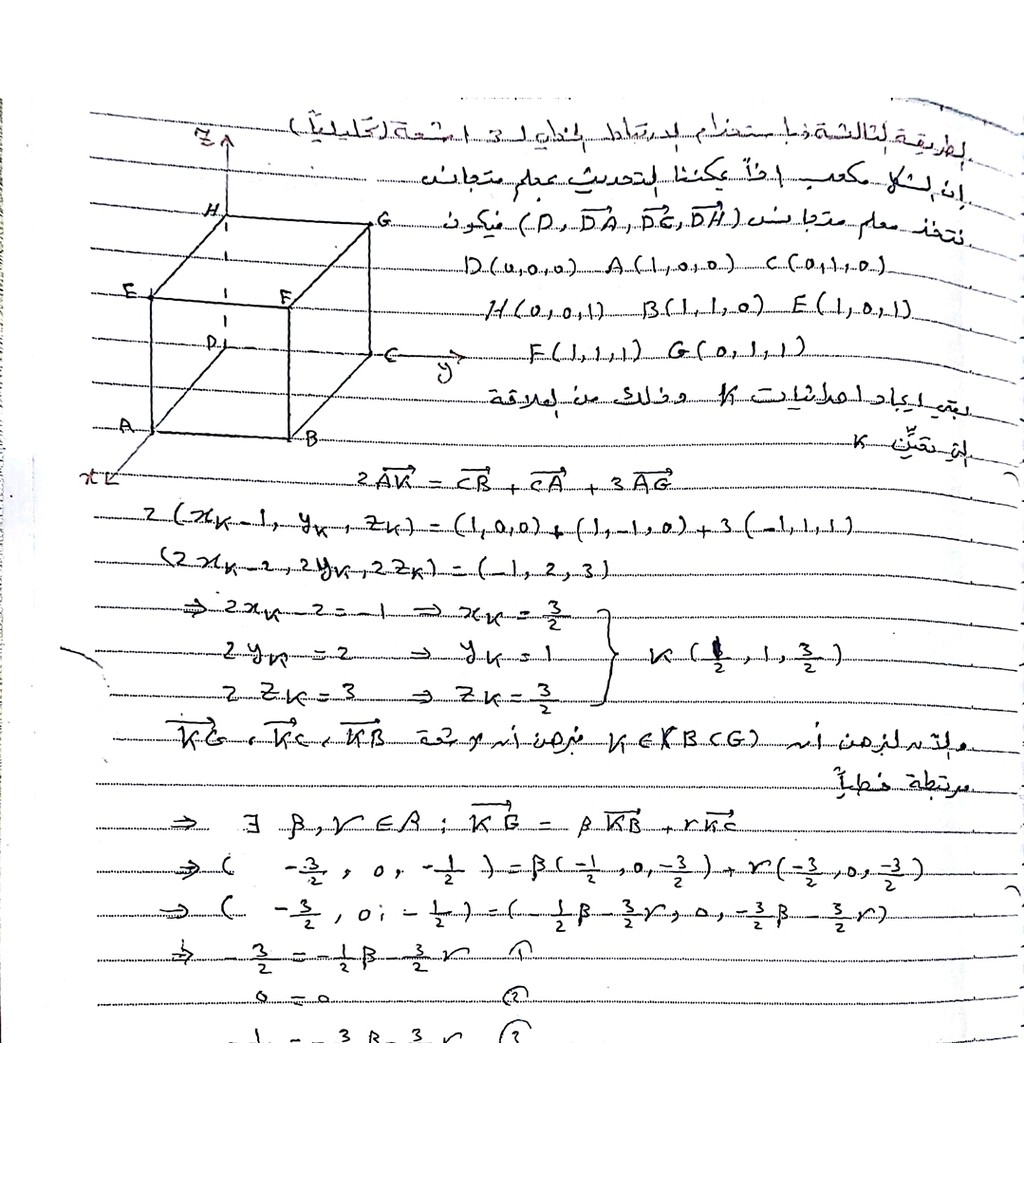 الطريقة الثالثة: باستخدام الارتباط الخطي لـ 3 أشعة (تحليلياً)
إن الشكل مكعب إذاً يمكننا التحديث بمعلم متجانس
نتخذ معلم متجانس (D, DA, DC, DH) فيكون
D(0,0,0) A(1,0,0) C(0,1,0)
H(0,0,1) B(1,1,0) E(1,0,1)
F(1,1,1) G(0,1,1)
بقي إيجاد احداثيات K وذلك من العلاقة
التي تعيّن K
Z
H
G
E
F
D
C
y
A
B
x
2AK = CB + CA + 3AG
2(xK-1, yK, zK) = (1,0,0) + (1,-1,0) + 3(-1,1,1)
(2xK-2, 2yK, 2zK) = (-1, 2, 3)
⇒ 2xK - 2 = -1 ⇒ xK = 3/2
2yK = 2 ⇒ yK = 1 } K(1/2, 1, 3/2)
2 zK = 3 ⇒ zK = 3/2
والآن لنبرهن أن K ∈ (BCG) نبرهن أن الأشعة KB, KC, KG
مرتبطة خطياً
⇒ ∃ β, γ ∈ R ; KG = β KB + γ KC
⇒ ( -3/2, 0, -1/2 ) = β(-1/2, 0, -3/2) + γ(-3/2, 0, -3/2)
⇒ ( -3/2, 0, -1/2 ) = (-1/2 β - 3/2 γ, 0, -3/2 β - 3/2 γ)
⇒ -3/2 = -1/2 β - 3/2 γ ①
0 = 0 ②